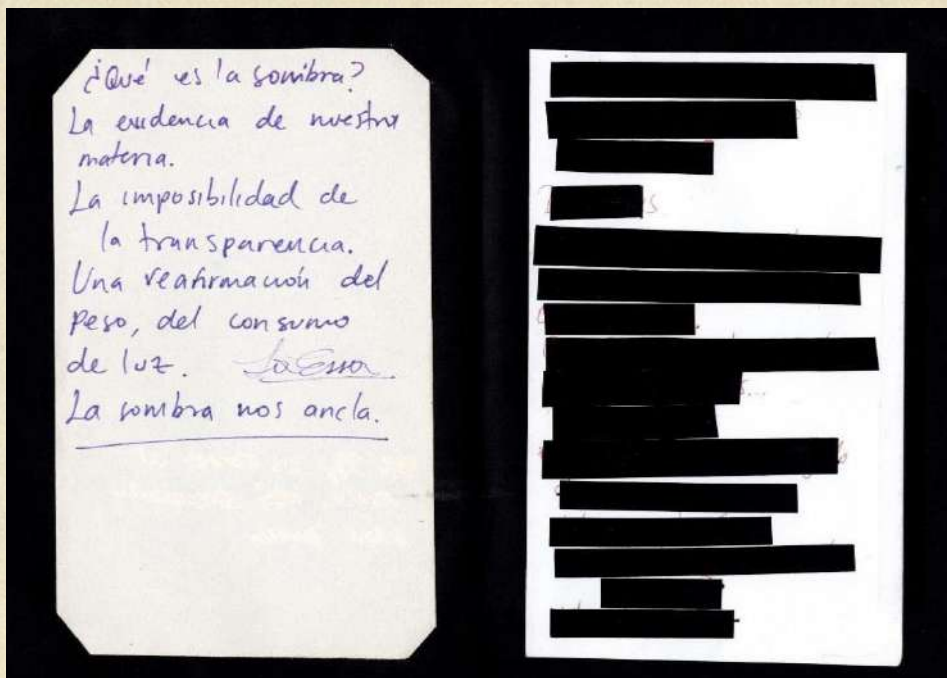 ¿Qué es la sombra?
La evidencia de nuestra
materia.
La imposibilidad de
la transparencia.
Una reafirmación del
peso, del consumo
de luz.
La sombra nos ancla.